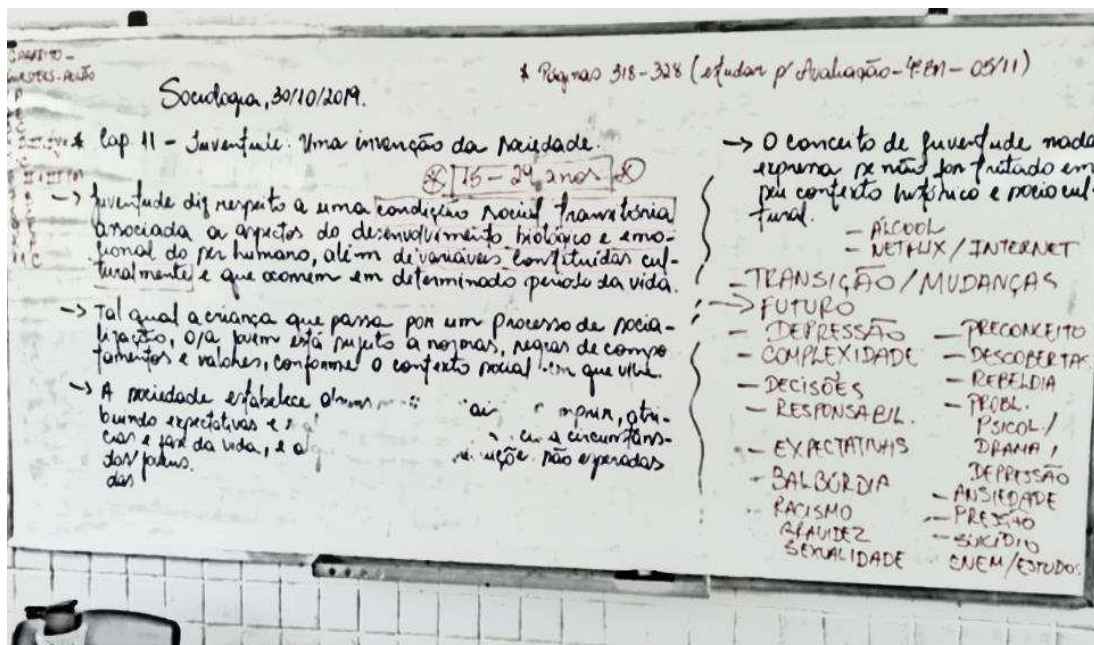 * Páginas 318-328 (estudar p/ Avaliação - 4º BM - 05/11)
Sociologia, 30/10/2019.
* Cap. 11 - Juventude: Uma invenção da sociedade.
15 - 24 anos
-> Juventude diz respeito a uma condição social transitória
associada a aspectos do desenvolvimento biológico e emo-
cional do ser humano, além de variáveis constituídas cul-
turalmente e que ocorrem em determinado período da vida.
-> Tal qual a criança que passa por um processo de socia-
lização, o/a jovem está sujeito a normas, regras de compo
tamentos e valores, conforme o contexto social em que vive.
-> A sociedade estabelece atri-
buindo expectativas e a circunstâns-
cias e fase da vida, e não esperadas
dos jovens.
das
-> O conceito de juventude nada
expressa se não for tratado em
seu contexto histórico e sociocul-
tural.
- ÁLCOOL
- NETFLIX / INTERNET
- TRANSIÇÃO / MUDANÇAS
-> FUTURO
- DEPRESSÃO
- COMPLEXIDADE
- DECISÕES
- RESPONSABIL.
- EXPECTATIVAS
- BALBÚRDIA
RACISMO
GRAVIDEZ
SEXUALIDADE
- PRECONCEITO
- DESCOBERTAS
- REBELDIA
- PROBL.
PSICOL. /
DRAMA /
DEPRESSÃO
- ANSIEDADE
- PRESSÃO
- SUICÍDIO
ENEM / ESTUDOS